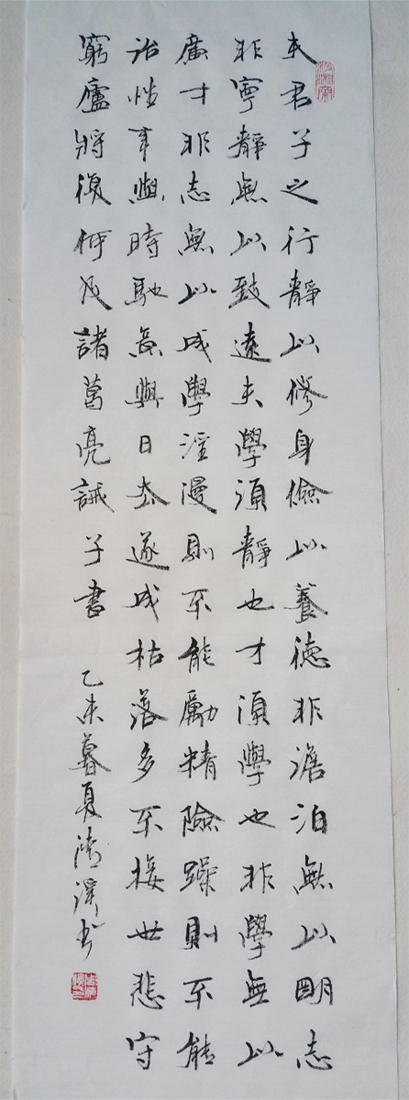 夫君子之行靜以修身儉以養德非澹泊無以明志
非寧靜無以致遠夫學須靜也才須學也非學無以
廣才非志無以成學淫漫則不能勵精險躁則不能
治性年與時馳意與日去遂成枯落多不接世悲守
窮廬將復何及諸葛亮誡子書 乙未暮夏 书